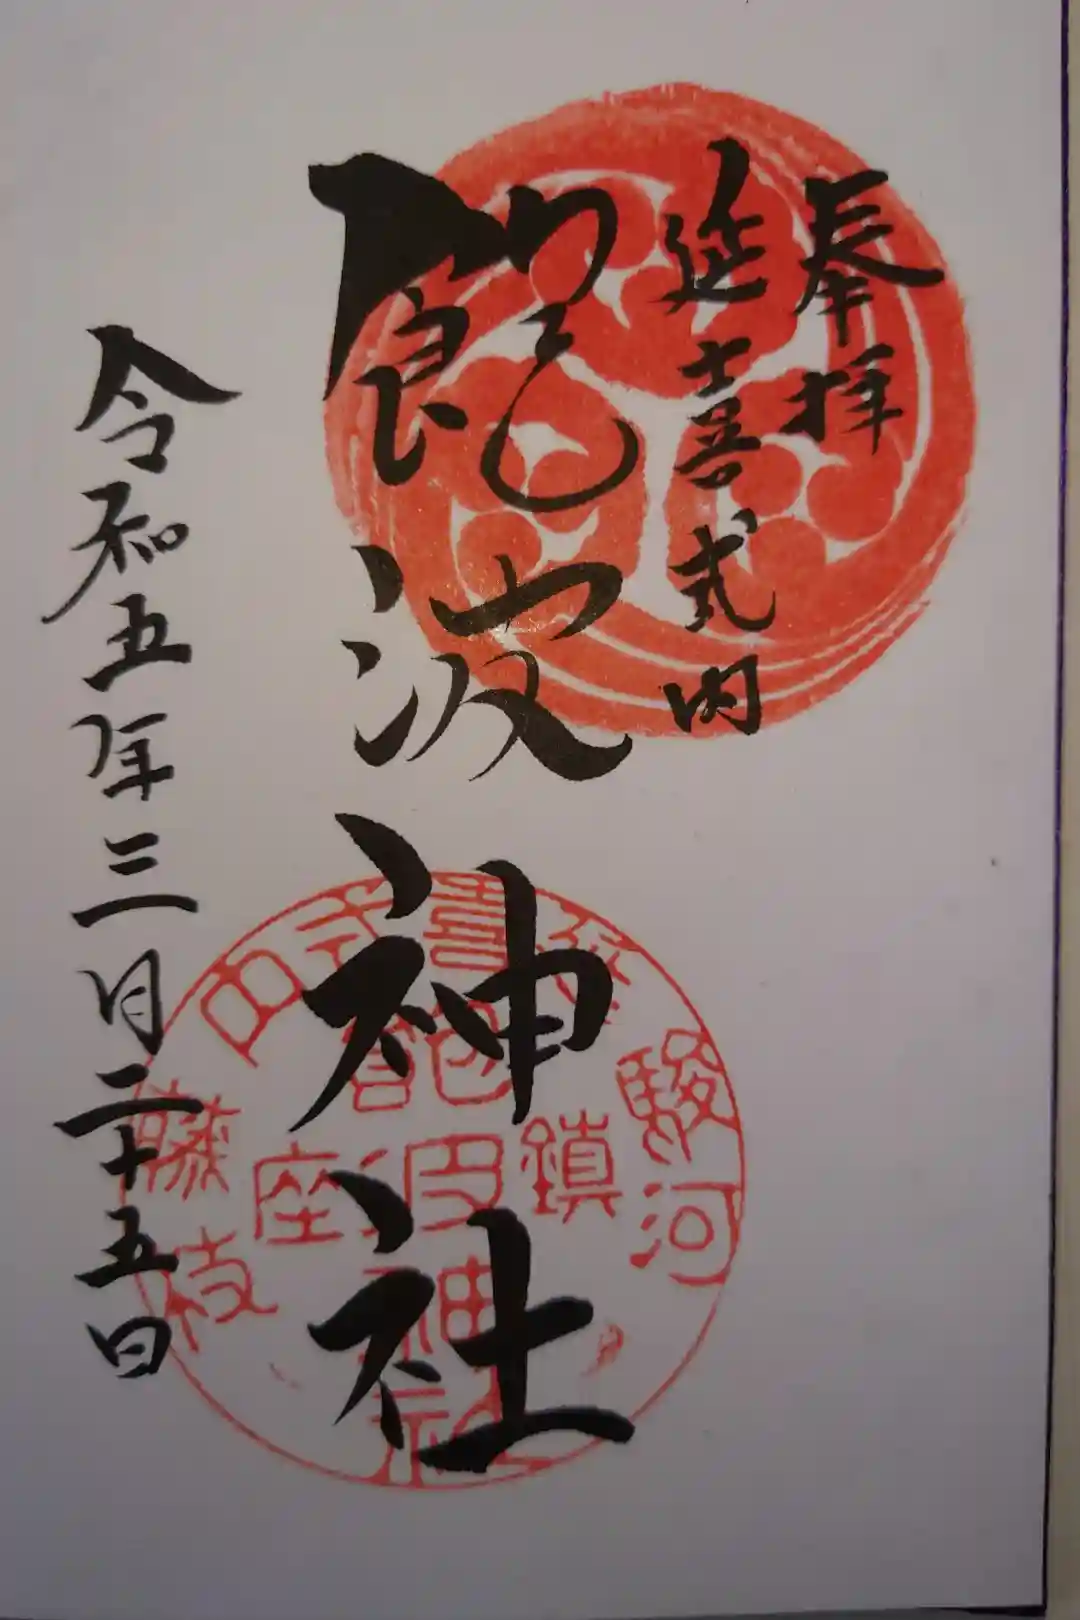 奉拝
延喜式内
飽波神社
令和五年三月二十五日
駿河
延喜式内
藤枝
鎮座
飽波神社